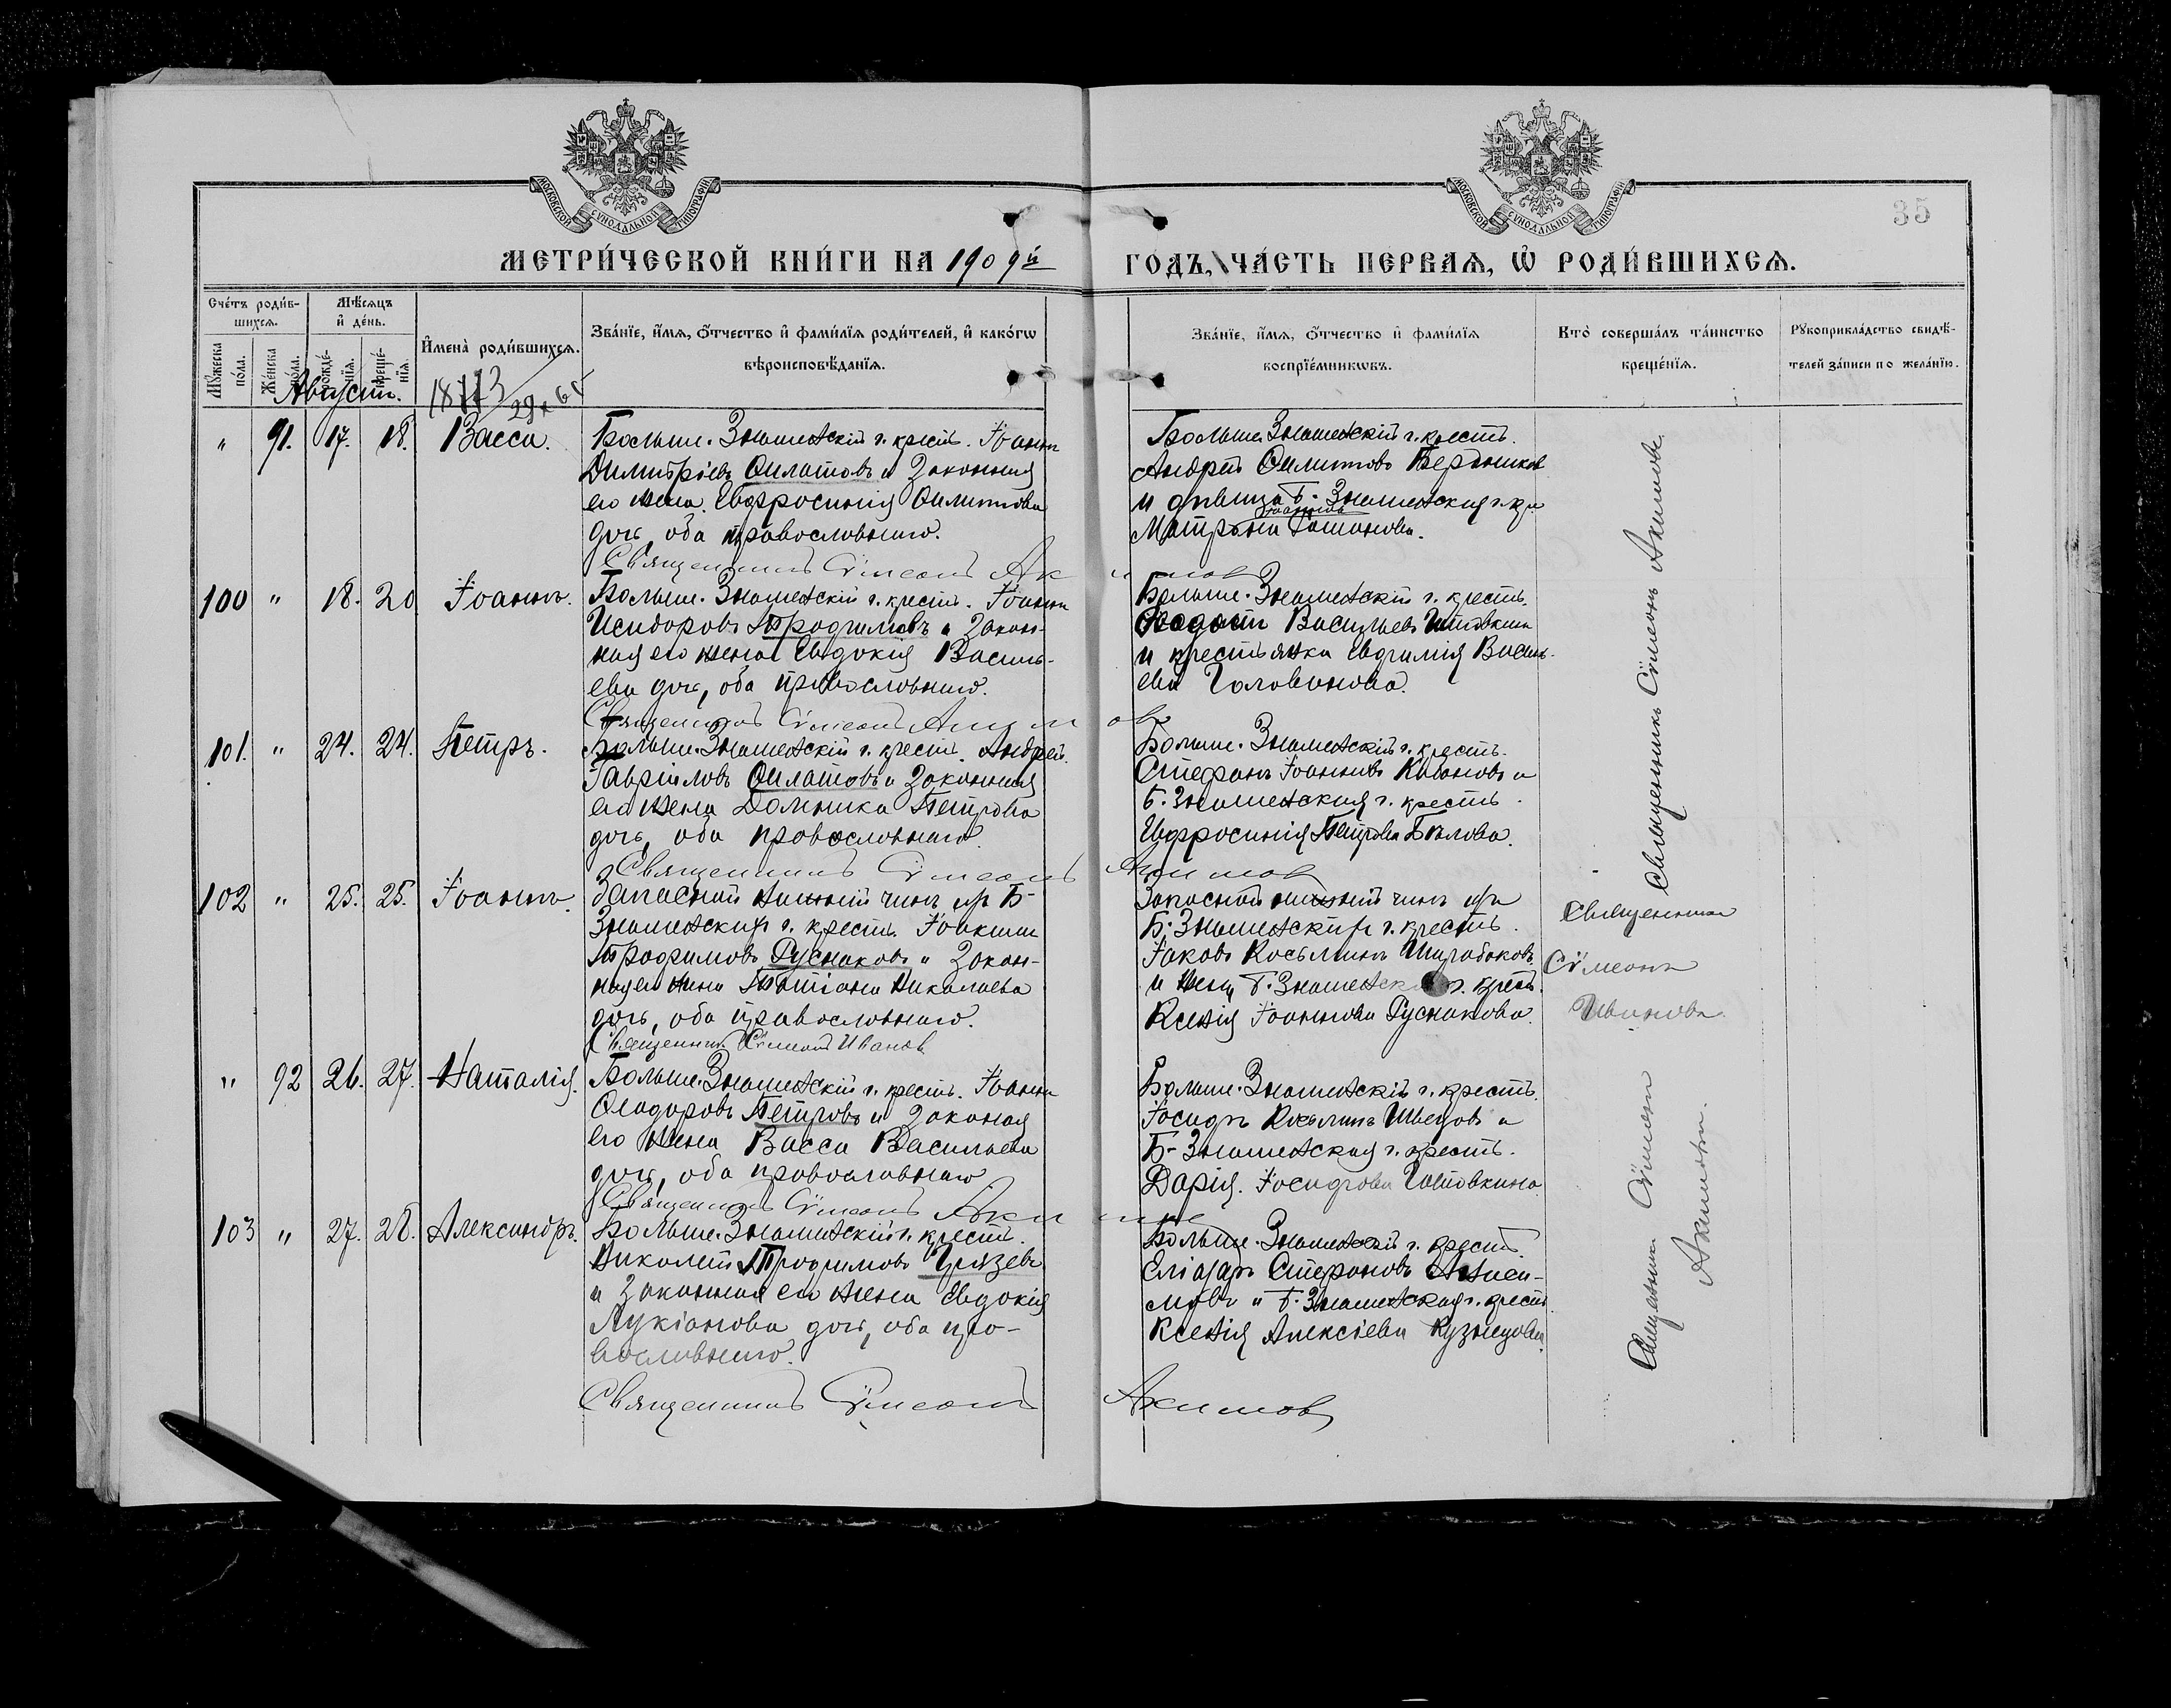 МОСКОВСКОЙ СУНОДАЛЬНОЙ ТИПОГРАФІИ
МОСКОВСКОЙ СУНОДАЛЬНОЙ ТИПОГРАФІИ
35
МЕТРИ́ЧЕСКОЙ КНИ́ГИ НА 1909й
ГОДЪ, ЧА́СТЬ ПЕРВАѦ, Ѿ РОДИ́ВШИХСѦ.
Сче́тъ роди́в-
шихсѧ.
Мѣ́сѧцъ
и҆ де́нь.
И҆мена̀ роди́вшихсѧ.
Зва́нїе, и҆́мѧ, ѻ҆́тчество и҆ фами́лїѧ роди́телей, и҆ како́гѡ
вѣроисповѣ́данїѧ.
Зва́нїе, и҆́мѧ, ѻ҆́тчество и҆ фами́лїѧ
воспрїе́мникѡвъ.
Кто̀ соверша́лъ та́инство
креще́нїѧ.
Рꙋкоприкла́дство свидѣ́-
телей за́писи по жела́нїю.
Мꙋ́жеска
по́ла.
Же́нска
по́ла.
рожде́-
нїѧ.
креще́-
нїѧ.
Августъ.
" 91. 17. 18. Васса.
Больше-Знаменскій г. крест. Іоаннъ
Димитріевъ Филатовъ и законная
его жена Евфросинія Филиппова
дочь, оба православнаго.
Священникъ Сѵмеонъ Акимовъ
Больше-Знаменскій г. крестъ.
Андрей Филиповъ
и дѣвица Б-Знаменская г. кр
Матрона
100 " 18. 20 Іоаннъ.
Больше-Знаменскій г. крестъ. Іоаннъ
Исидоровъ Трофимовъ и закон-
ная его жена Евдокія Василь-
ева дочь, оба православнаго.
Священникъ Сѵмеонъ Акимовъ
Больше-Знаменскій г. крестъ.
Васильевъ
и крестьянка Евфимія Василь-
ева Голованова.
101. " 24. 24. Петръ.
Больше-Знаменскій г. крест. Андрей
Гавріиловъ Филатовъ и законная
его жена Домника Петрова
дочь, оба православнаго.
Священникъ Сѵмеонъ Акимовъ
Больше-Знаменскій г. крестъ.
Стефанъ Іоанновъ и
Б-Знаменская г. крестъ.
Евфросинія Петрова Бѣлова.
102 " 25. 25. Іоаннъ.
Запасный нижній чинъ изъ Б-
Знаменскихъ г. крестъ. Іоакимъ
Трофимовъ Руснаковъ и закон-
ная его жена Татіана Николаева
дочь, оба православнаго.
Священникъ Сѵмеонъ Ивановъ
Запасный нижній чинъ изъ
Б-Знаменскихъ г. крестъ.
Іаковъ Косьминъ
и жена Б-Знаменск г. крест.
Ксенія Іоаннова Руснакова.
Священникъ
Сѵмеонъ
Ивановъ.
" 92 26. 27. Наталія.
Больше-Знаменскій г. крестъ. Іоаннъ
Ѳеодоровъ Петровъ и законая
его жена Васса Васильева
дочь, оба православнаго
Священникъ Сѵмеонъ Акимовъ
Больше-Знаменскій г. крестъ.
Іосифъ Косьминъ Швецовъ и
Б-Знаменская г. крестъ.
Дарія Іосифова
103 " 27. 28. Александръ.
Больше-Знаменскій г. крестъ.
Николай Трофимовъ Грязевъ
и законная его жена Евдокія
Лукіанова дочь, оба пра-
вославнаго.
Священникъ Сѵмеонъ Акимовъ
Больше-Знаменскій г. крест.
Еліазаръ Стефановъ Аниси-
мовъ и Б-Знаменская г. крест.
Ксенія Алексіева Кузнецова.
Священникъ Сѵмеонъ Акимовъ.
Священникъ Сѵмеон
Акимовъ.